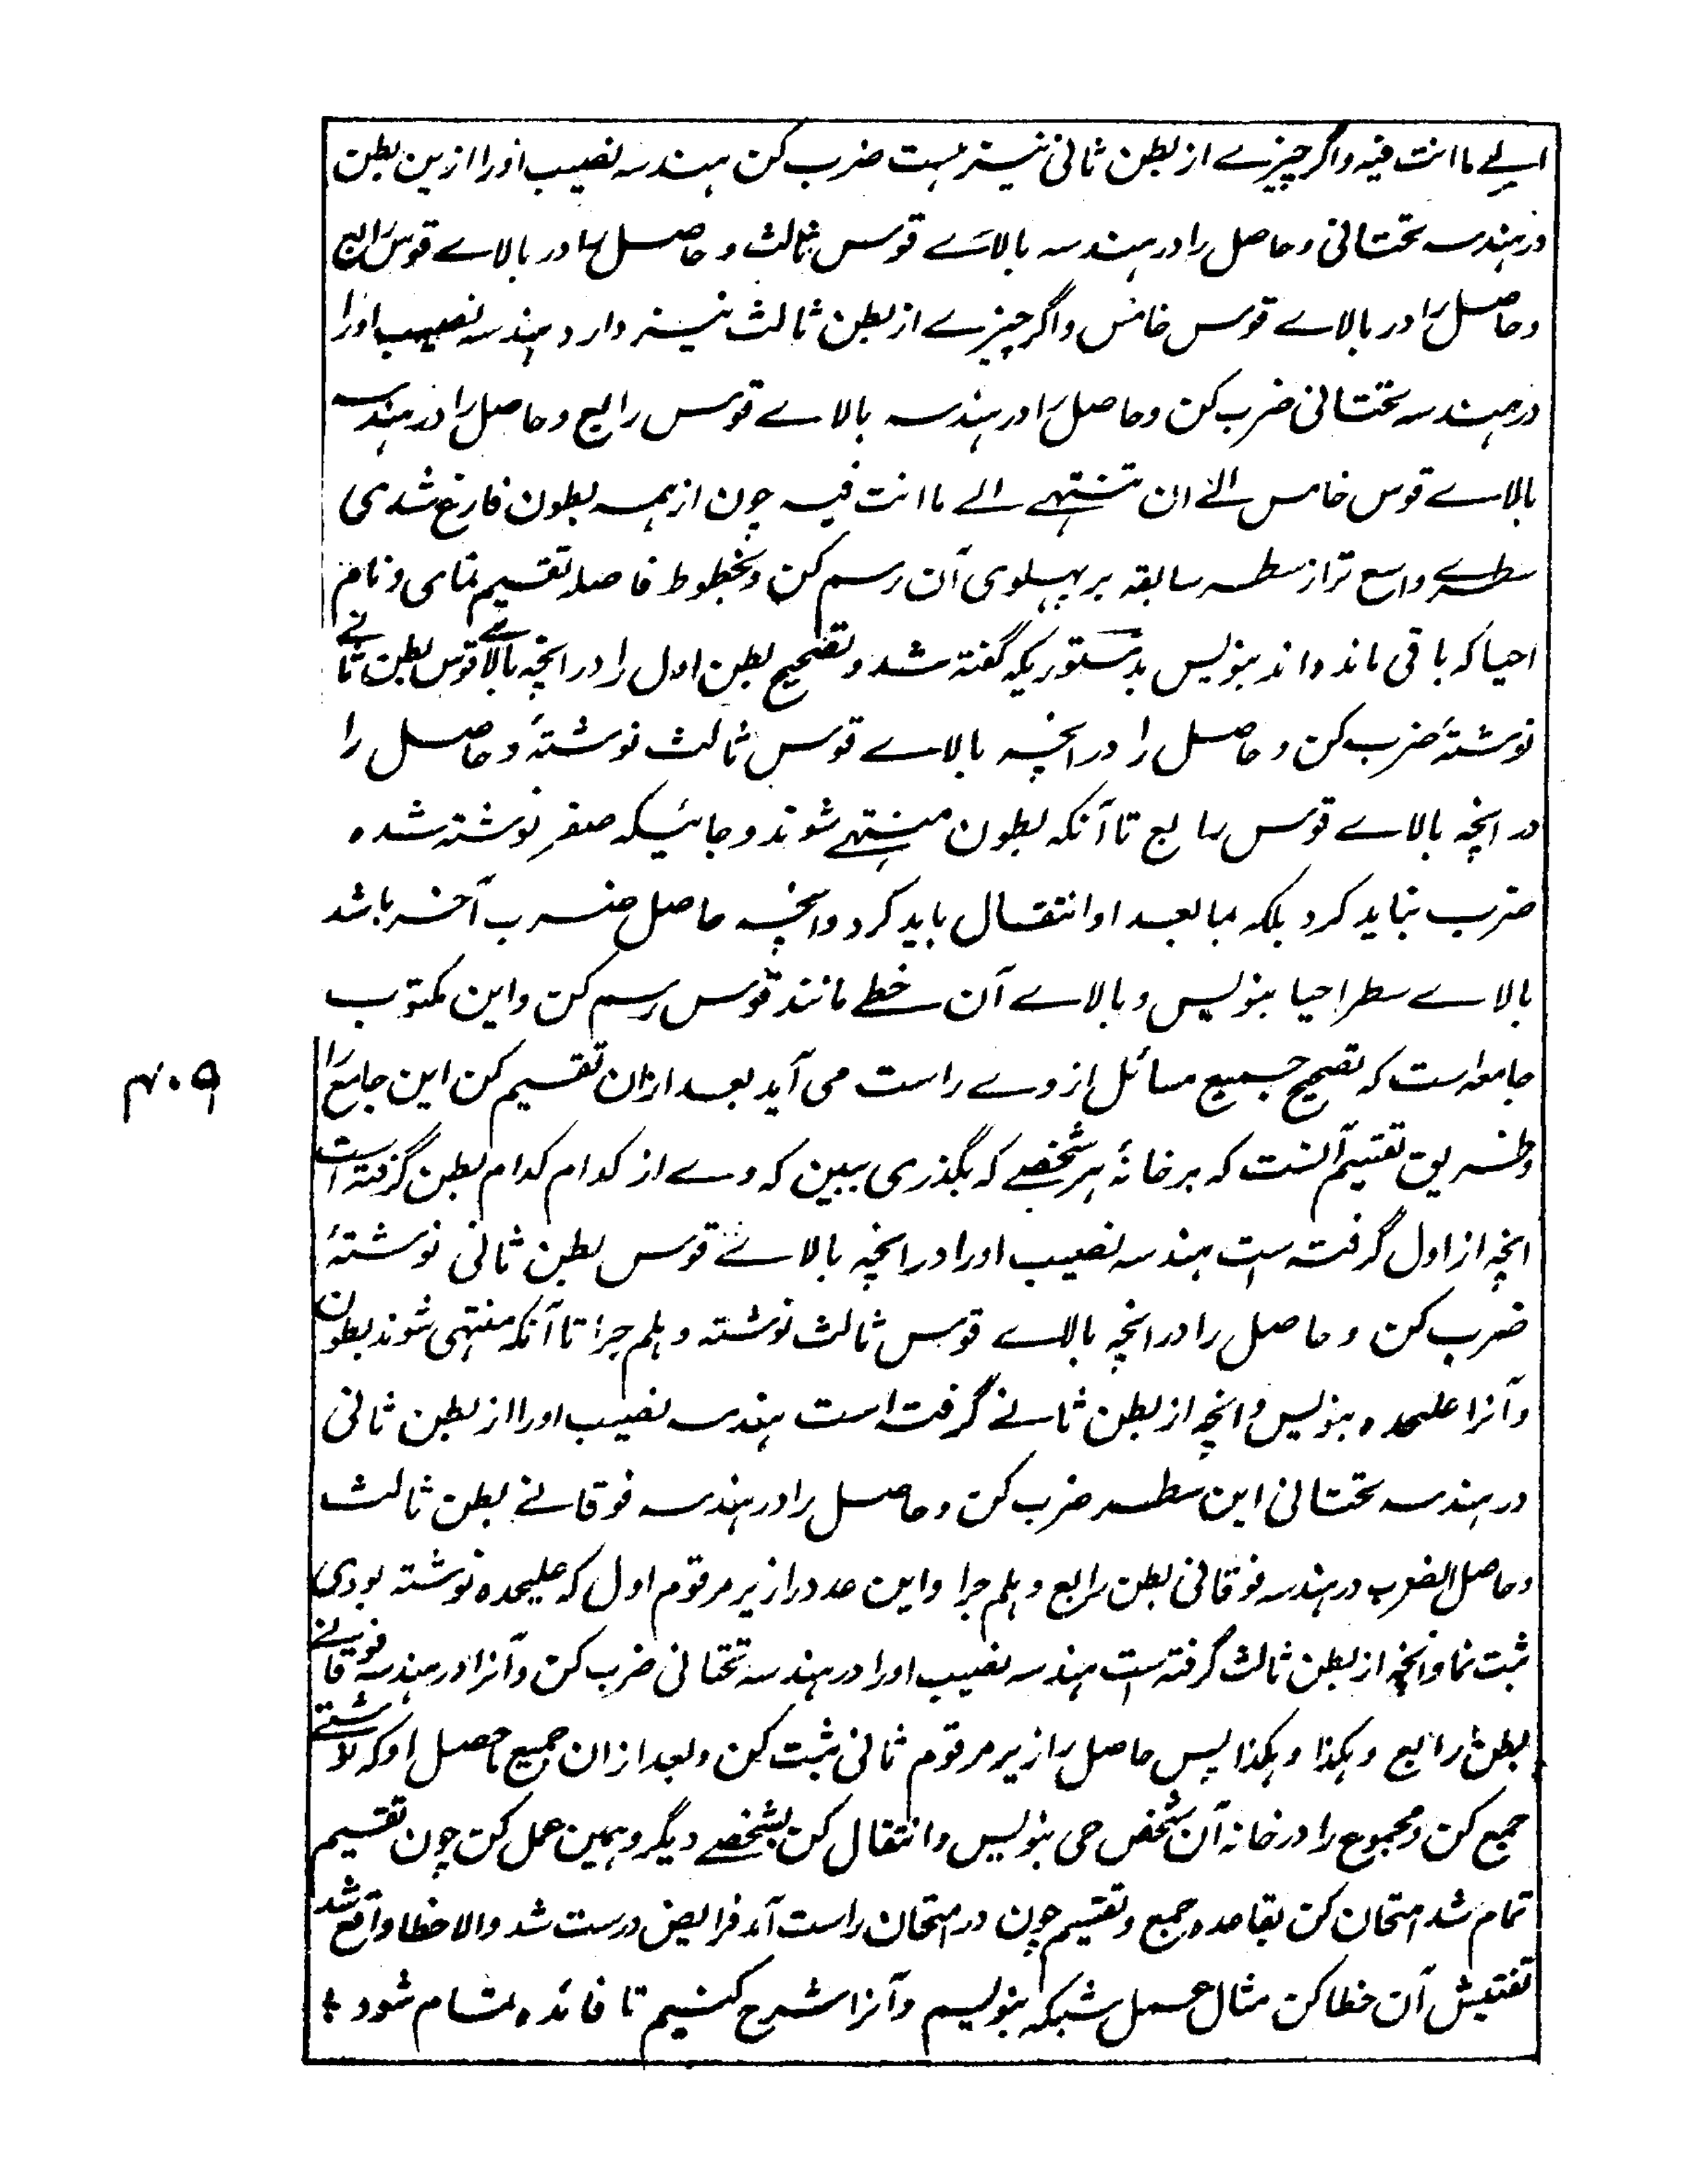 الے ما انت فیہ واگر چیزے از بطن ثانی نیز ہست ضرب کن ہندسہ نصیب اورا ازین بطن
در ہندسہ تحتانی و حاصل را در ہندسہ بالاے قوس ثالث و حاصل را در بالاے قوس رابع
و حاصل را در بالاے قوس خامس واگر چیزے از بطن ثالث نیز دارد ہندسہ نصیب اورا
در ہندسہ تحتانی ضرب کن و حاصل را در ہندسہ بالاے قوس رابع و حاصل را در ہندسہ
بالاے قوس خامس الے ان تنتہے الے ما انت فیہ چون از ہمہ بطون فارغ شدی
سطرے واسع تر از سطر سابقہ بر پہلوی آن رسم کن و بخطوط فاصلہ تقسیم نمای و نام
احیا کہ باقی ماندہ اند بنویس بدستوریکہ گفتہ شد و تصحیح بطن اول را در انچہ بالاے قوس بطن ثانے
نوشتۂ ضرب کن و حاصل را در انچہ بالاے قوس ثالث نوشتۂ و حاصل را
در انچہ بالاے قوس رابع تا آنکہ بطون منتہے شوند و جائیکہ صفر نوشتہ شدہ
ضرب نباید کرد بلکہ بما بعد او انتقال باید کرد وانچہ حاصل ضرب آخر باشد
بالاے سطر احیا بنویس و بالاے آن خطے مانند قوس رسم کن واین مکتوب
جامعہ است کہ تصحیح جمیع مسائل از وے راست می آید بعد ازان تقسیم کن این جامع را
۴۰۹
و طریق تقسیم آنست کہ بر خانۂ ہر شخصے کہ بگذری ببین کہ وے از کدام کدام بطن گرفتہ است
انچہ از اول گرفتہ است ہندسہ نصیب اورا در انچہ بالاے قوس بطن ثانی نوشتۂ
ضرب کن و حاصل را در انچہ بالاے قوس ثالث نوشتہ و ہلم جرا تا آنکہ منتہی شوند بطون
و آنرا علیحدہ بنویس وانچہ از بطن ثانے گرفتہ است ہندسہ نصیب اورا از بطن ثانی
در ہندسہ تحتانی این سطر ضرب کن و حاصل را در ہندسہ فوقانے بطن ثالث
و حاصل الضرب در ہندسہ فوقانی بطن رابع و ہلم جرا واین عدد را زیر مرقوم اول کہ علیحدہ نوشتہ بودی
ثبت نما وانچہ از بطن ثالث گرفتہ است ہندسہ نصیب اورا در ہندسہ تحتانی ضرب کن و آنرا در ہندسہ فوقانے
بطن رابع و ہکذا و ہکذا پس حاصل را زیر مرقوم ثانی ثبت کن و بعد ازان جمیع حاصل را کہ نوشتے
جمع کن و مجموع را در خانہ آن شخص حی بنویس و انتقال کن بشخصے دیگر و ہمین عمل کن چون تقسیم
تمام شد امتحان کن بقاعدہ جمع و تقسیم چون در امتحان راست آمد فرایض درست شد والا خطا واقع شد
تفتیش آن خطا کن مثال عمل شبکہ بنویسم و آنرا شرح کنیم تا فائدہ تمام شود ؛